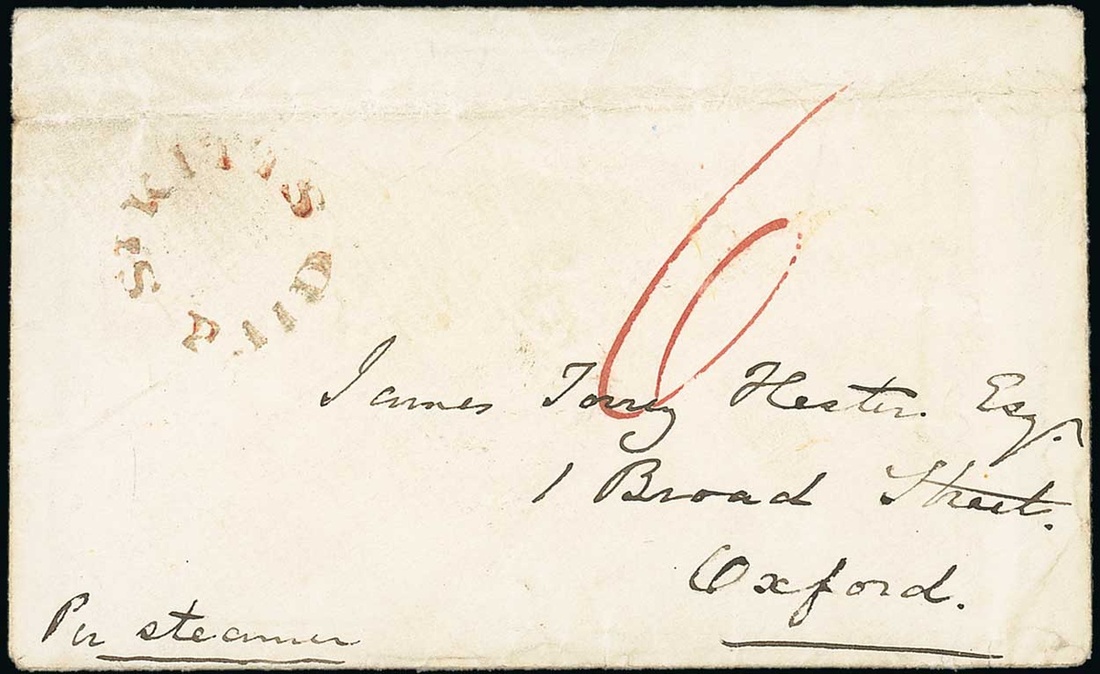 ST KITTS
PAID
6
James Torry Hester. Esqr.
1 Broad Street.
Oxford.
Per steamer